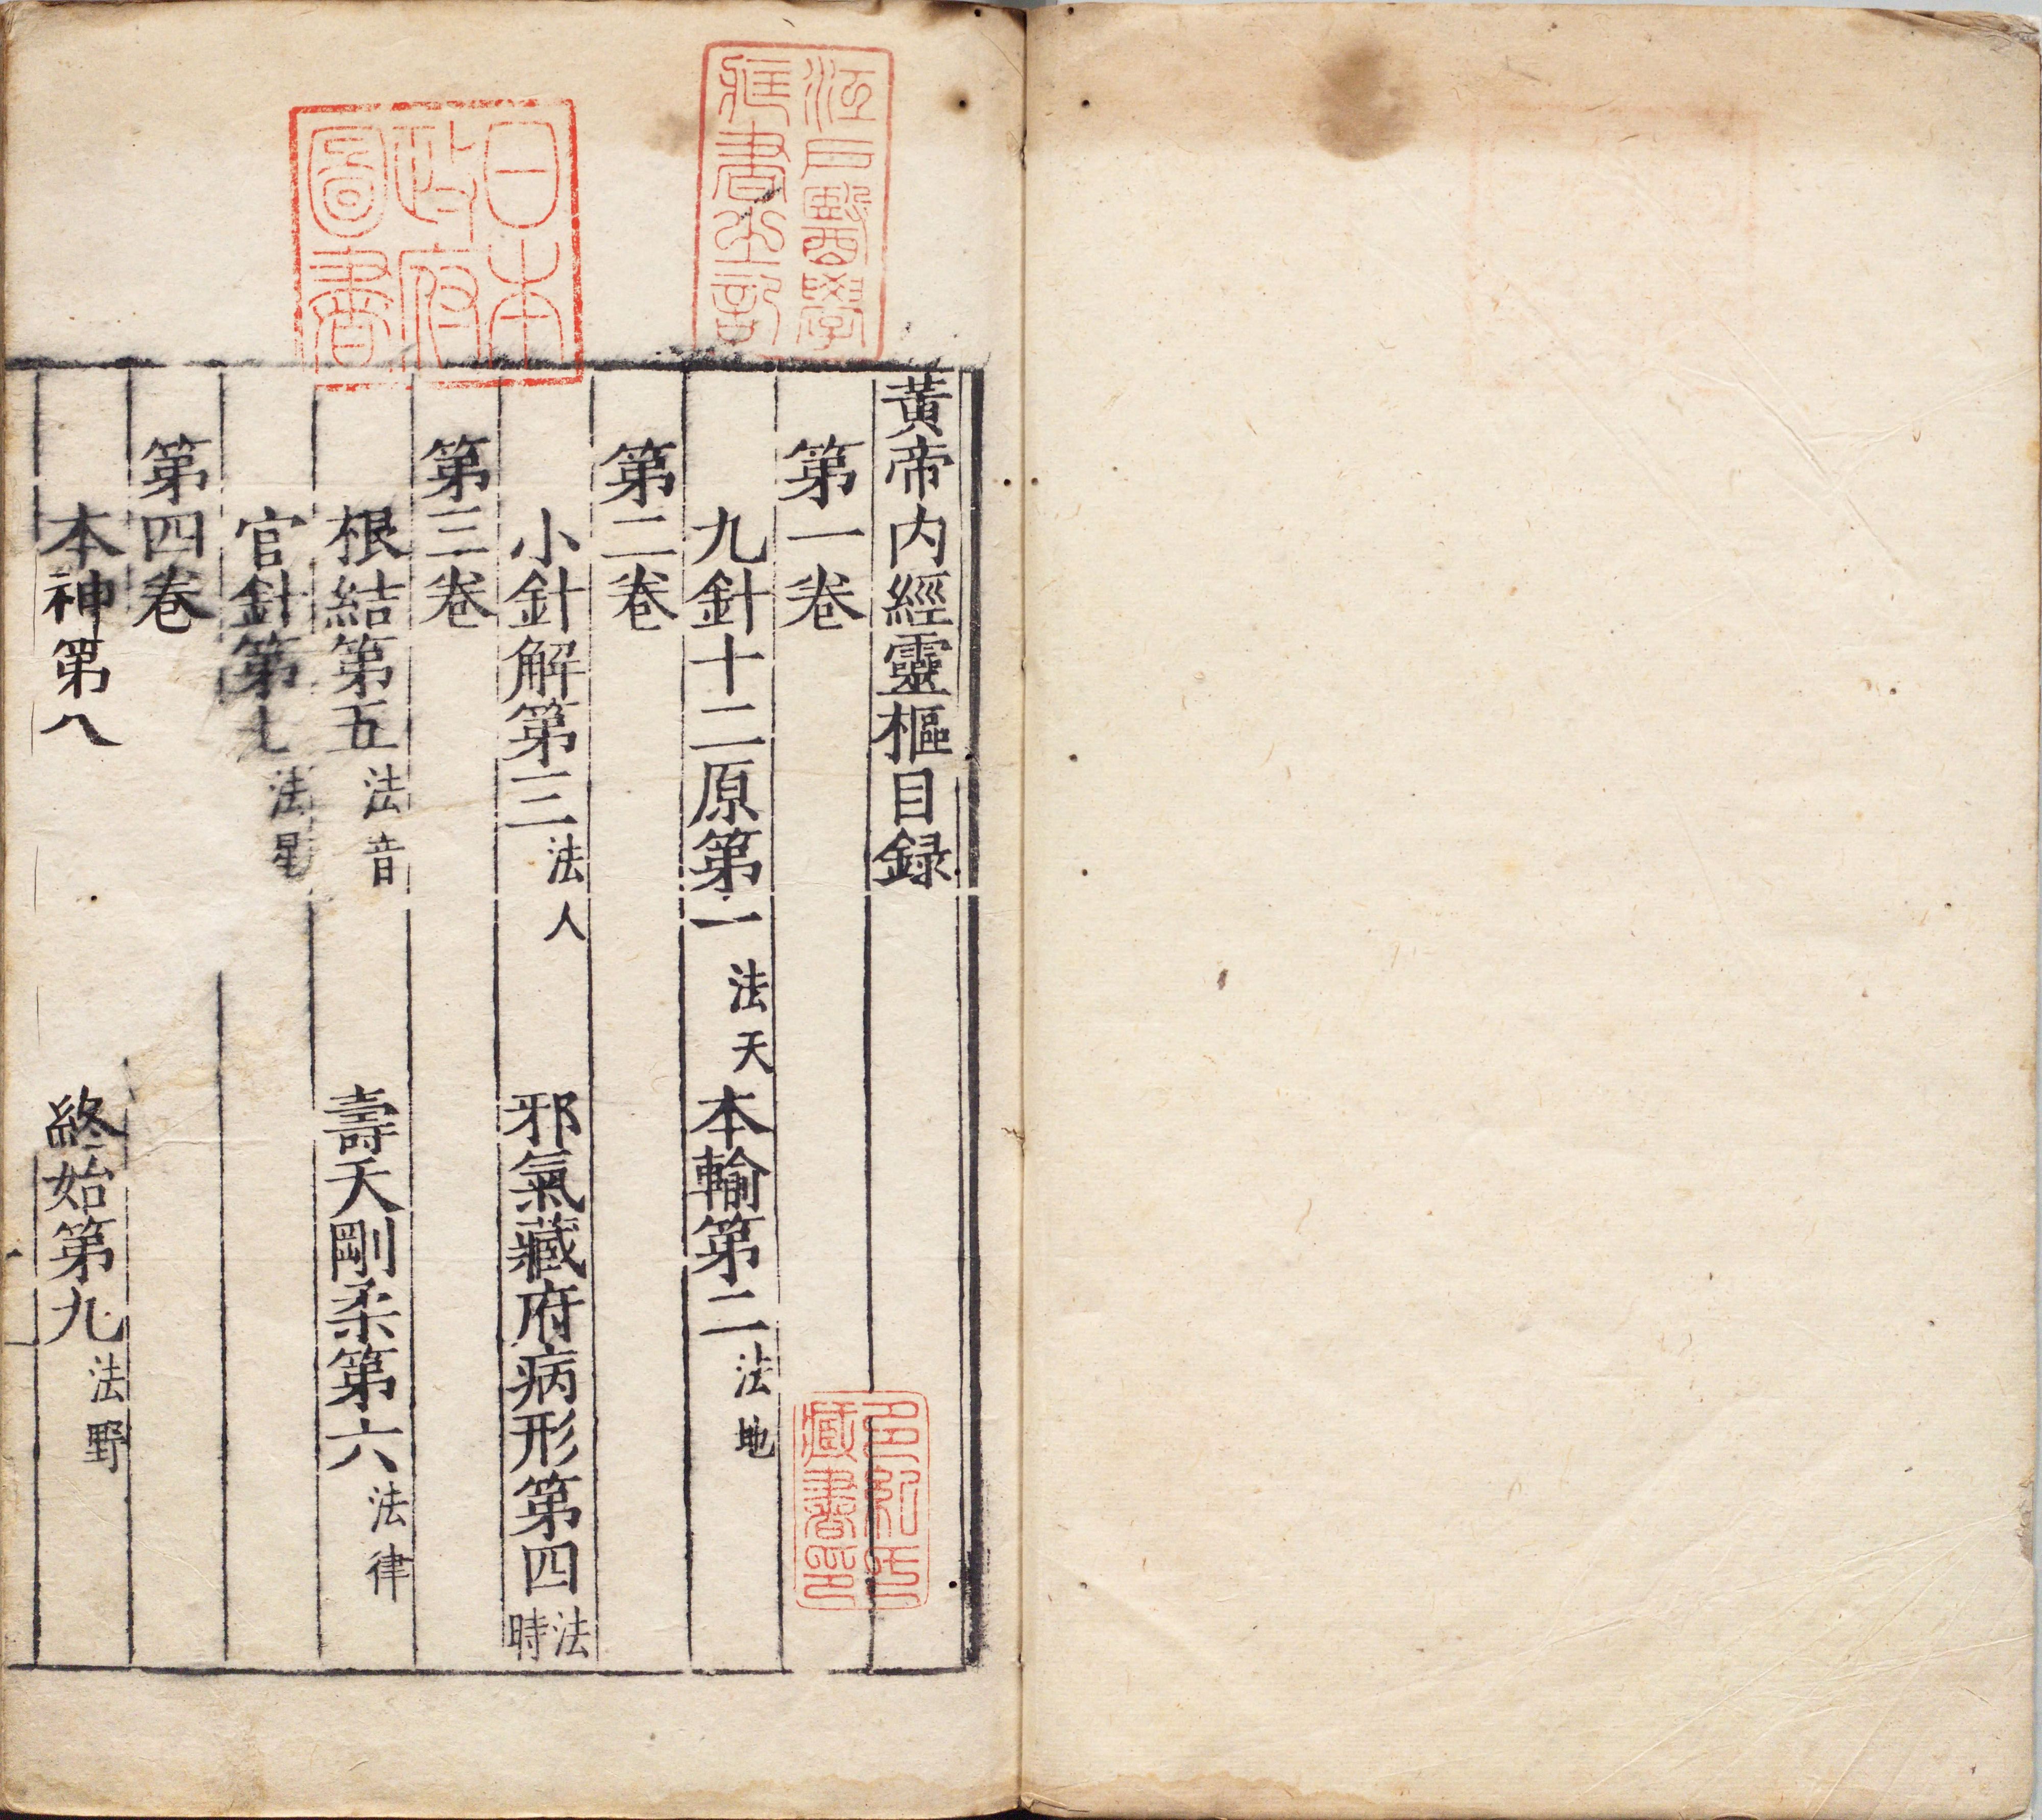 黃帝内經靈樞目録
第一卷
九針十二原第一 法天 本輸第二 法地
第二卷
小針解第三 法人 邪氣藏府病形第四 法時
第三卷
根結第五 法音 壽夭剛柔第六 法律
官針第七 法星
第四卷
本神第八 終始第九 法野
江戸醫學
藏書之記
日本
政府
圖書
多紀氏
藏書印